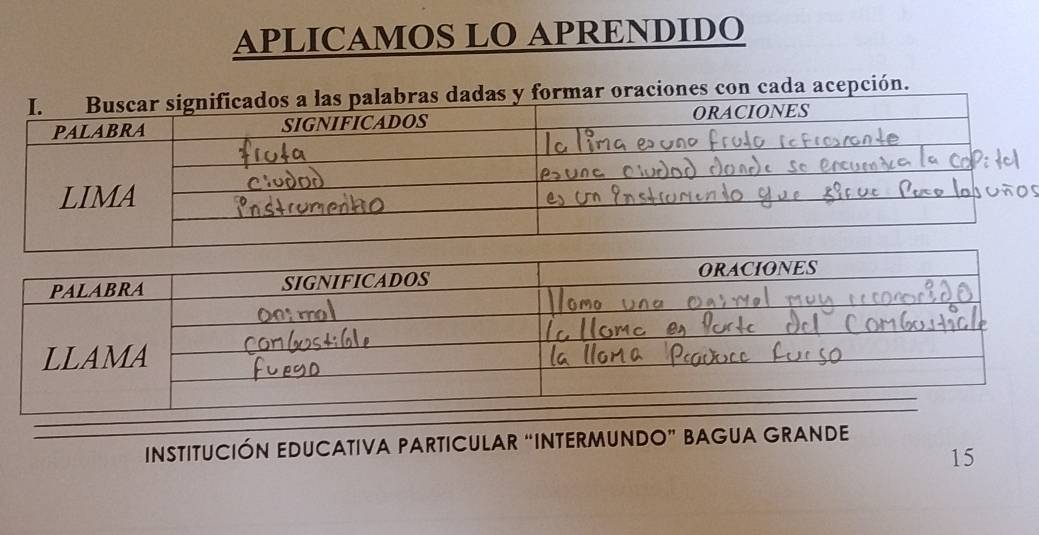 APLICAMOS LO APRENDIDO
I. Buscar significados a las palabras dadas y formar oraciones con cada acepción.
PALABRA SIGNIFICADOS ORACIONES
fruta la lima es una fruta refrescante
ciudad es una ciudad donde se encuentra la capital
LIMA instrumento es un instrumento que sirve para las uños
PALABRA SIGNIFICADOS ORACIONES
animal llama una animal muy reconocido
combostible la llama es parte del combustible
LLAMA fuego la llama produce
INSTITUCIÓN EDUCATIVA PARTICULAR "INTERMUNDO" BAGUA GRANDE
15